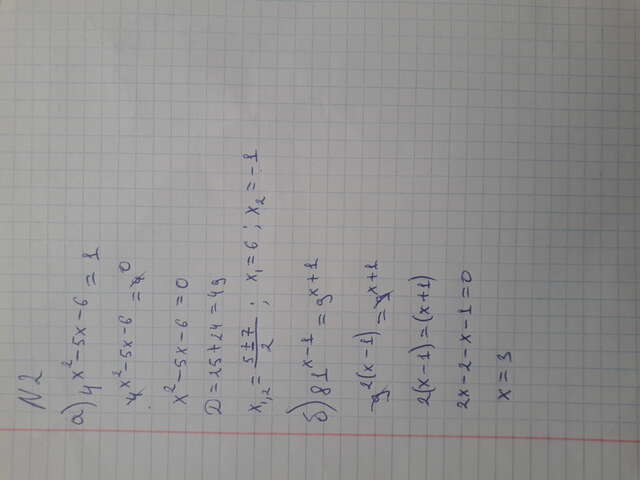 N2
а) 4^{x²-5x-6} = 1
4^{x²-5x-6} = 4^0
x²-5x-6 = 0
D = 25+24 = 49
x_{1,2} = \frac{5±7}{2} ; x_1 = 6 ; x_2 = -1
б) 81^{x-1} = 9^{x+1}
9^{2(x-1)} = 9^{x+1}
2(x-1) = (x+1)
2x-2-x-1 = 0
x = 3